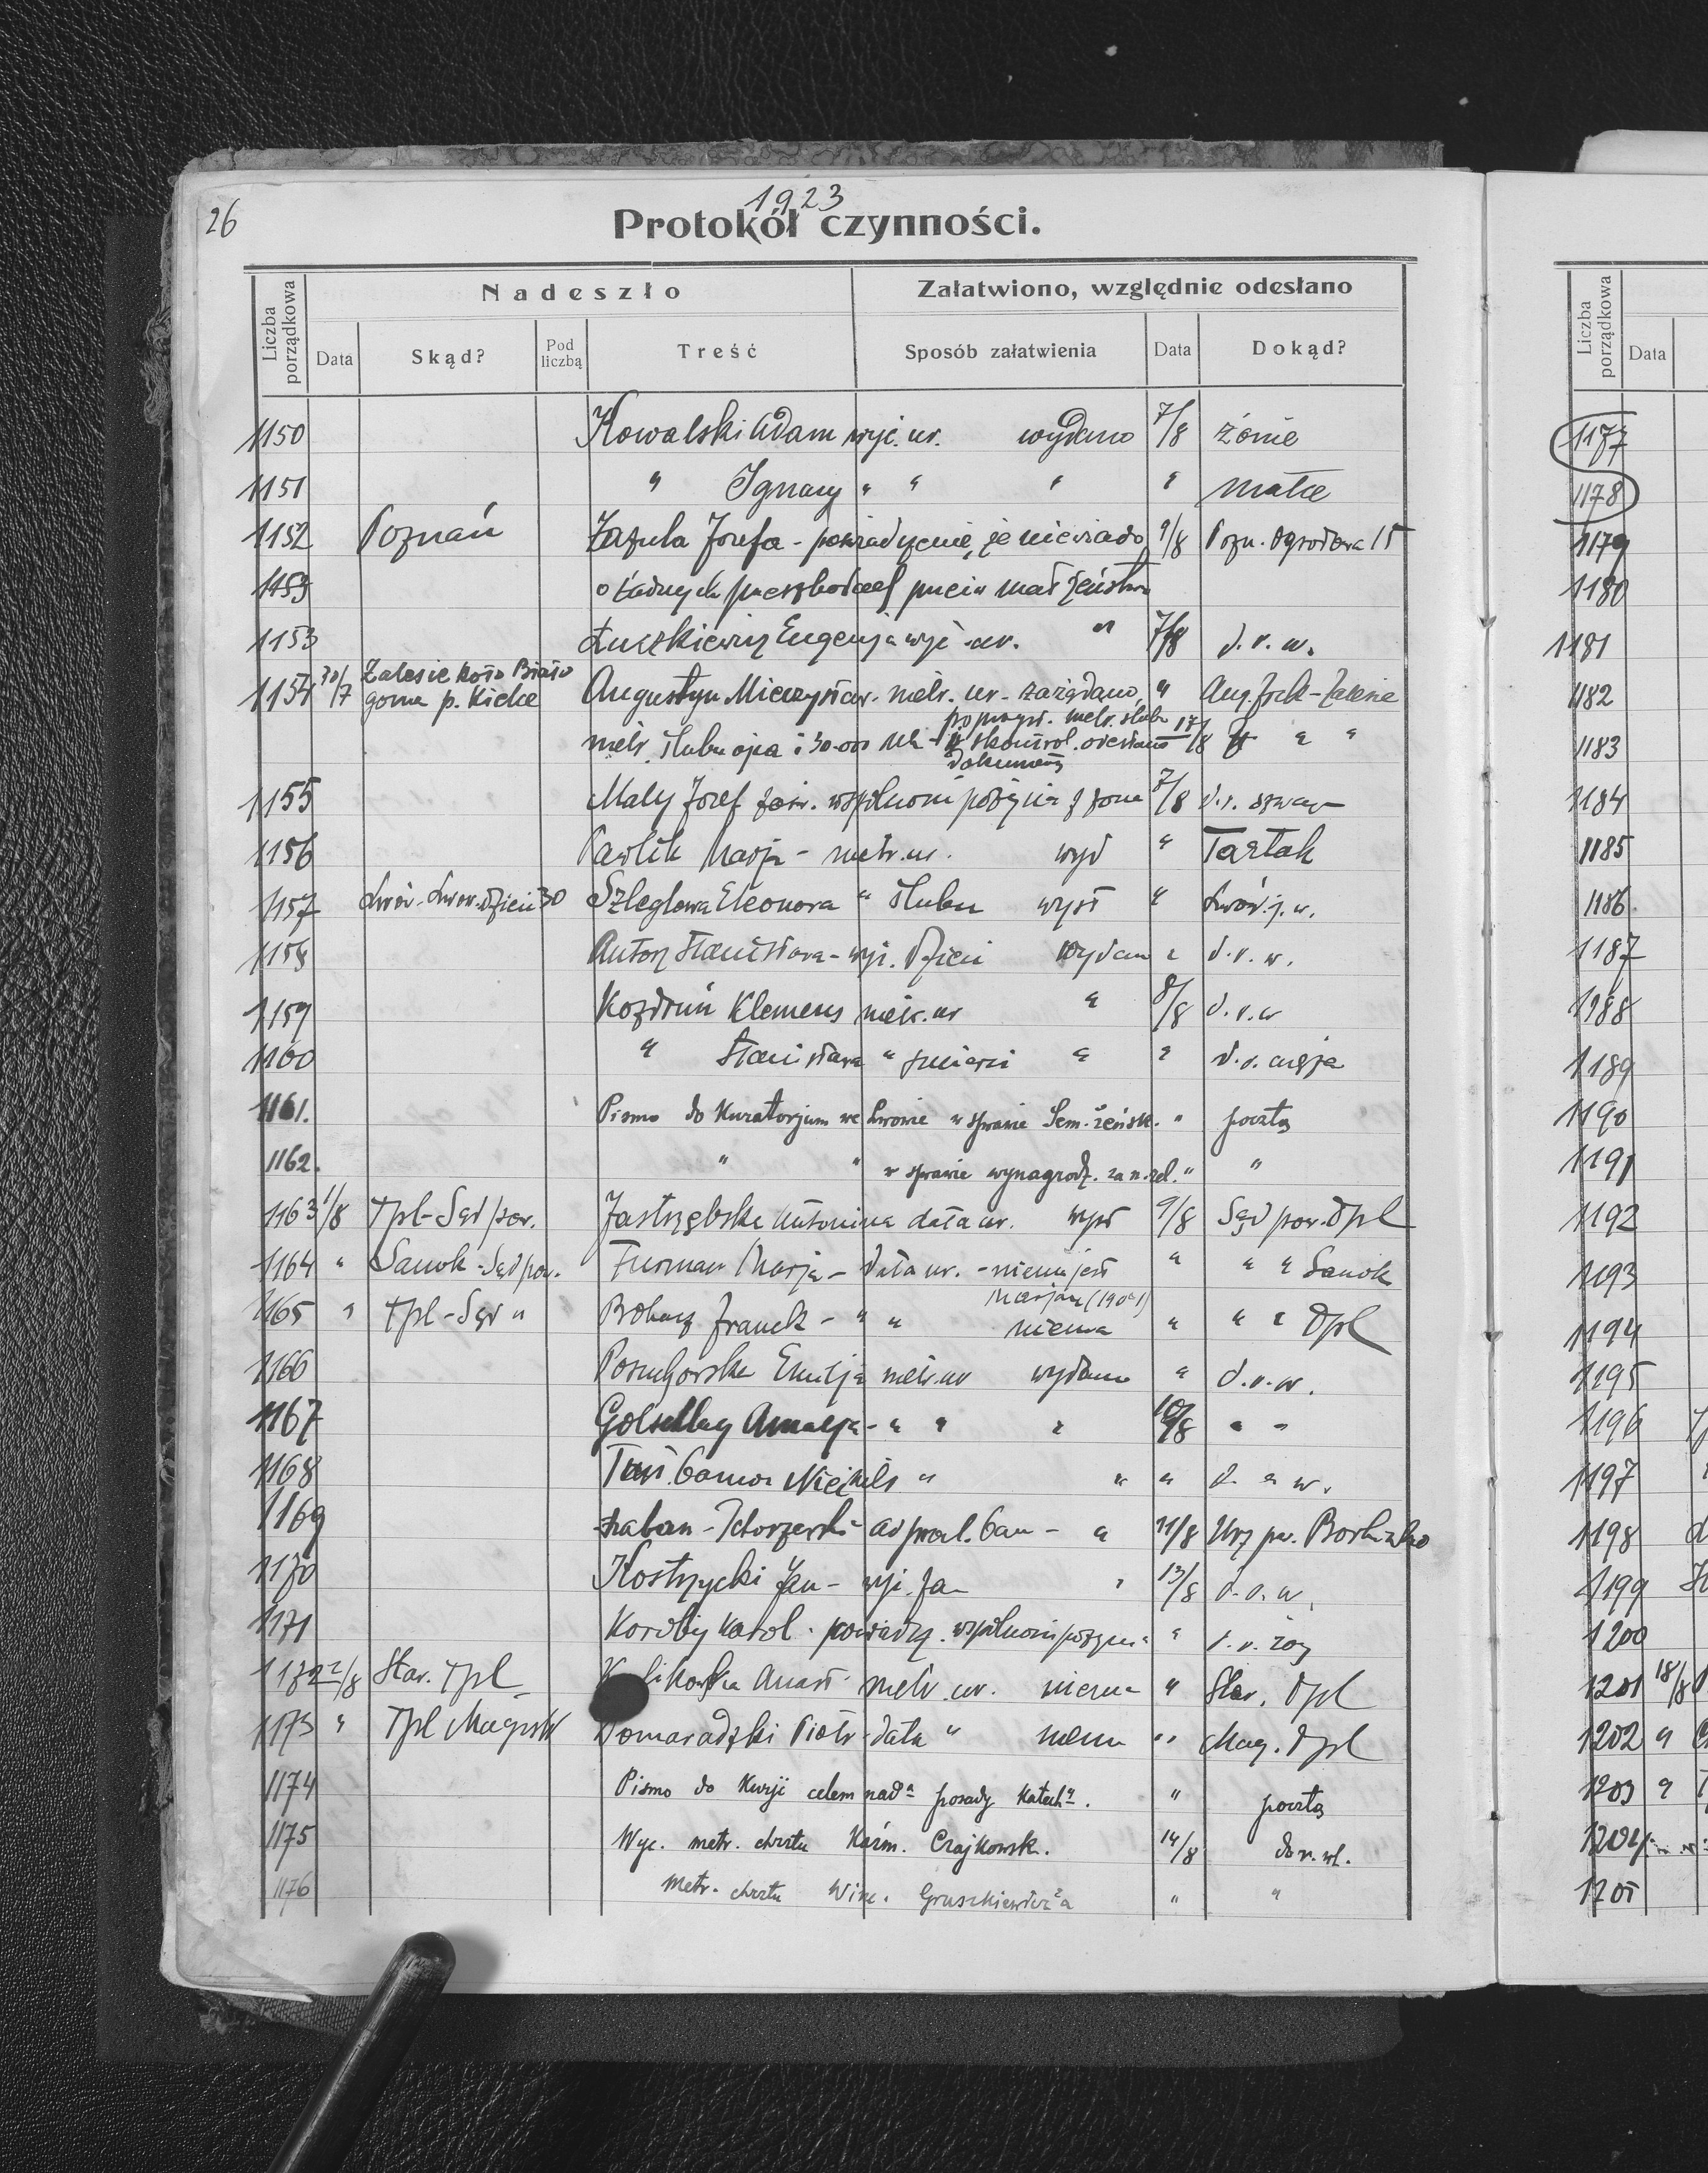 26
1923
Protokół czynności.
Liczba porządkowa
Nadeszło
Załatwiono, względnie odesłano
Data
Skąd?
Pod liczbą
Treść
Sposób załatwienia
Data
Dokąd?
1150 Kowalski Adam wyc. ur. wydano 7/8 żonie
1151 " Ignacy " " " " matce
1152 Poznań Zazula Józefa - poświadczenie, że nie wiado 9/8 Pozn. Ogrodowa 15
1153 o żadnych przeszkodach małżeństwa
1153 Łuczkiewicz Eugenja wyc. ur. " 7/8 d. r. w.
1154 30/7 Zalesie koło Biało
gonia p. Kielce Augustyn Mieczysław. metr. ur. - zażądano " Aug. Zalesie
po metr. ślubu
metr. ślubu ojca i 30.000 Mk - skontrol. odesłano 17/8 " "
dokumenty
1155 Mały Józef zaśw. wspólnom pożycia z żoną 7/8 d. r.
1156 Pawlik Marja - metr. ur. wyd " Tartak
1157 Lwów - Lwow. Dzieci 30 Szleglowa Eleonora " ślubu wysł " Lwów j. w.
1158 Antosz Stanisława - wyc. Dzieci wydano " d. r. w.
1159 Kozdruń Klemens metr. ur " 8/8 d. r. w
1160 " Stanisława " śmierci " " d. r. męża
1161. Pismo do Kuratorjum we Lwowie w sprawie Sem. żeńsk. " pocztą
1162. " " w sprawie wynagrodz. za n. rel. " "
1163 1/8 Tpl - Sąd pow. Jastrzębska Antonina data ur. wysł 9/8 Sąd pow. Tpl
1164 " Sanok - Sąd pow. Furman Marja - data ur. - niema jest " " " Sanok
Marjan (1901)
1165 " Tpl - Sąd " Franck - " " niema " " " Tpl
1166 Emilja metr. ur wydano " d. r. w.
1167 Amalja - " " " 10/8 " "
1168 " " " d. " w.
1169 - " 11/8 Urz par.
1170 Kostrzycki Jan - wyc. " 13/8 d. r. w.
1171 Karol - poświadcz. wspólnom pożycia " d. r.
1172 2/8 Star. Tpl metr. ur. niema " Star. Tpl
1173 " Tpl Magistr Domaradzki Piotr - data " niema " Mag. Tpl
1174 Pismo do Kurji celem nada posady katecha. " pocztą
1175 Wyc. metr. chrztu Kaźm. Czajkowsk. 14/8 do r. wł.
1176 metr. chrztu Winc. Gruszkiewicza " "
Liczba porządkowa
Data
1177
1178
1179
1180
1181
1182
1183
1184
1185
1186.
1187
1988
1189
1190
1191
1192
1193
1194
1195
1196
1197
1198
1199
1200
1201 18/8
1202 "
1203 "
1204
1205